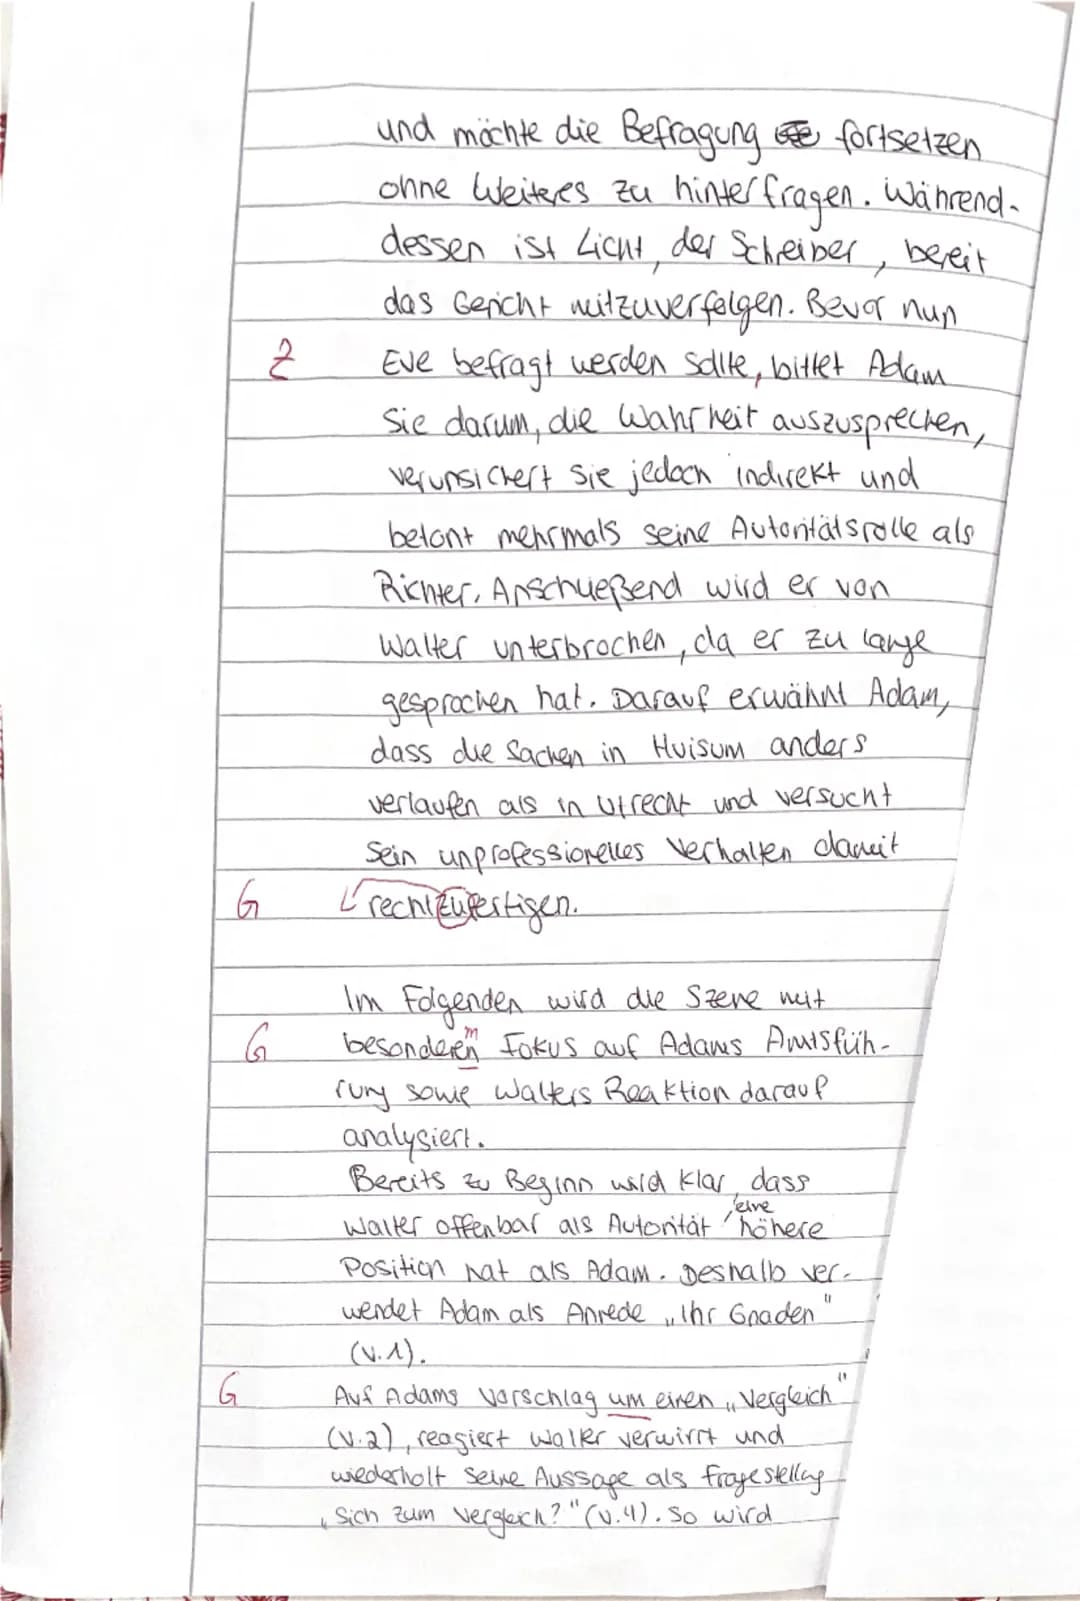 und möchte die Befragung fortsetzen
ohne Weiteres zu hinterfragen. Während-
dessen ist Licht, der Scheiber, bereit
das Gericht mitzuverfolgen. Bevor nun
Z Eve befragt werden sollte, bittet Adam
Sie darum, die Wahrheit auszusprechen,
verunsichert sie jedoch indirekt und
betont mehrmals seine Autoritätsrolle als
Richter. Anschließend wird er von
Walter unterbrochen, da er zu lange
gesprochen hat. Darauf erwähnt Adam,
dass die Sachen in Huisum anders
verlaufen als in Utrecht und versucht
sein unprofessionelles Verhalten damit
G rechtzufertigen.
Im Folgenden wird die Szene mit
G besonderen m Fokus auf Adams Amtsfüh-
rung sowie Walters Reaktion darauf
analysiert.
Bereits zu Beginn wird klar, dass
Walter offenbar als Autorität, eine höhere
Position hat als Adam. Deshalb ver-
wendet Adam als Anrede „Ihr Gnaden"
(V.1).
G Auf Adams Vorschlag um einen „Vergleich"
(V.2), reagiert Walter verwirrt und
wiederholt seine Aussage als Fragestellung
„Sich zum Vergleich?" (V.4). So wird